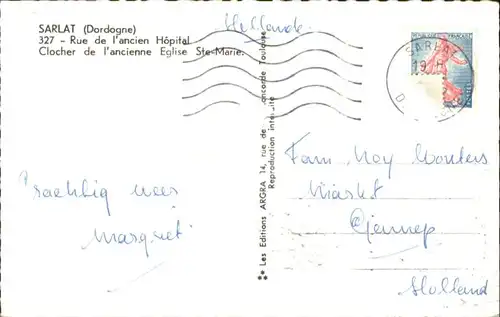 SARLAT (Dordogne)
327 - Rue de l'ancien Hôpital
Clocher de l'ancienne Eglise Ste-Marie.
Hollande
REPUBLIQUE FRANÇAISE
SARLAT
19 H
D
Les Editions ARGRA 14, rue de Concorde Toulouse
Reproduction interdite
Prachtig weer
Margriet
Fam Noy Wouters
Markt
Gennep
Holland